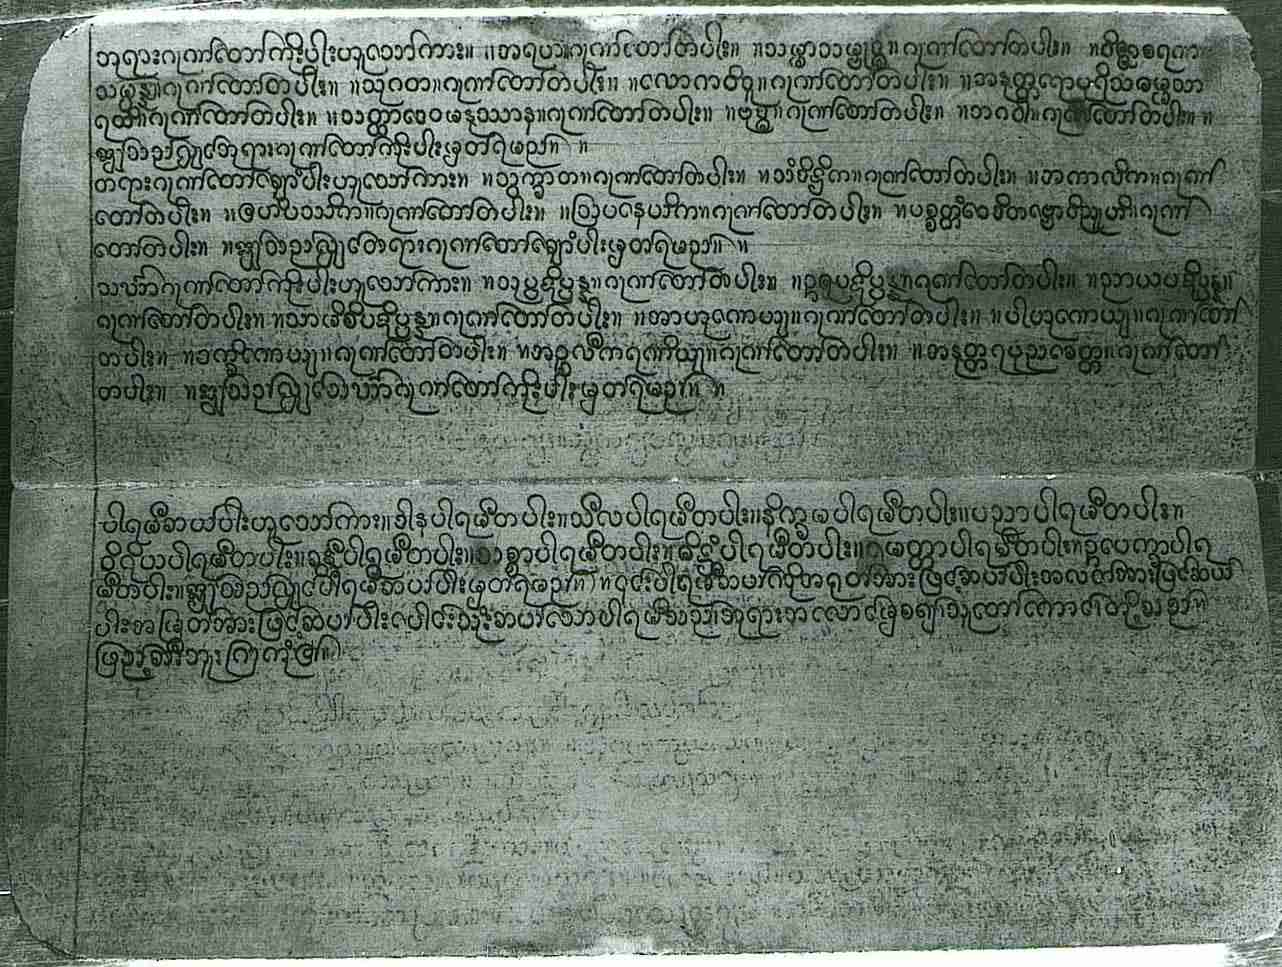 ဘုရားဂုဏ်တော်ကိုးပါးဟူသော်ကား။ ။အရဟံ။ဂုဏ်တော်တပါး။ ။သမ္မာသမ္ဗုဒ္ဓ။ဂုဏ်တော်တပါး။ ။ဝိဇ္ဇာစရဏ
သမ္ပန္န။ဂုဏ်တော်တပါး။ ။သုဂတ။ဂုဏ်တော်တပါး။ ။လောကဝိဒူ။ဂုဏ်တော်တပါး။ ။အနုတ္တရောပုရိသဓမ္မသာ
ရထိ။ဂုဏ်တော်တပါး။ ။သတ္ထာဒေဝမနုဿာန။ဂုဏ်တော်တပါး။ ။ဗုဒ္ဓ။ဂုဏ်တော်တပါး။ ။ဘဂဝါ။ဂုဏ်တော်တပါး။ ။
ဤသည်လျှင်ဘုရားဂုဏ်တော်ကိုးပါးမှတ်ရမည်။ ။
တရားဂုဏ်တော်ခြောက်ပါးဟူသော်ကား။ ။သွက္ခာတ။ဂုဏ်တော်တပါး။ ။သံဒိဋ္ဌိက။ဂုဏ်တော်တပါး။ ။အကာလိက။ဂုဏ်
တော်တပါး။ ။ဧဟိပဿိက။ဂုဏ်တော်တပါး။ ။ဩပနေယိက။ဂုဏ်တော်တပါး။ ။ပစ္စတ္တံဝေဒိတဗ္ဗောဝိညူဟိ။ဂုဏ်
တော်တပါး။ ။ဤသည်လျှင်တရားဂုဏ်တော်ခြောက်ပါးမှတ်ရမည်။ ။
သံဃာ်ဂုဏ်တော်ကိုးပါးဟူသော်ကား။ ။သုပ္ပဋိပ္ပန္န။ဂုဏ်တော်တပါး။ ။ဥဇုပဋိပ္ပန္န။ဂုဏ်တော်တပါး။ ။ညာယပဋိပ္ပန္န။
ဂုဏ်တော်တပါး။ ။သာမိစိပဋိပ္ပန္န။ဂုဏ်တော်တပါး။ ။အာဟုနေယျ။ဂုဏ်တော်တပါး။ ။ပါဟုနေယျ။ဂုဏ်တော်
တပါး။ ။ဒက္ခိဏေယျ။ဂုဏ်တော်တပါး။ ။အဉ္ဇလီကရဏိယျ။ဂုဏ်တော်တပါး။ ။အနုတ္တရပုညခေတ္တ။ဂုဏ်တော်
တပါး။ ။ဤသည်လျှင်သံဃာ်ဂုဏ်တော်ကိုးပါးမှတ်ရမည်။ ။
ပါရမီဆယ်ပါးဟူသော်ကား။ဒါနပါရမီတပါး။သီလပါရမီတပါး။နိက္ခမပါရမီတပါး။ပညာပါရမီတပါး။
ဝိရိယပါရမီတပါး။ခန္တီပါရမီတပါး။သစ္စာပါရမီတပါး။မိဋ္ဌာပါရမီတပါး။မေတ္တာပါရမီတပါး။ဥပေက္ခာပါရ
မီတပါး။ဤသည်လျှင်ပါရမီဆယ်ပါးမှတ်ရမည်။ ။၎င်းပါရမီဆယ်ပါးကိုအရုတ်အားဖြင့်ဆယ်ပါးအလတ်အားဖြင့်ဆယ်
ပါးအမြတ်အားဖြင့်ဆယ်ပါး